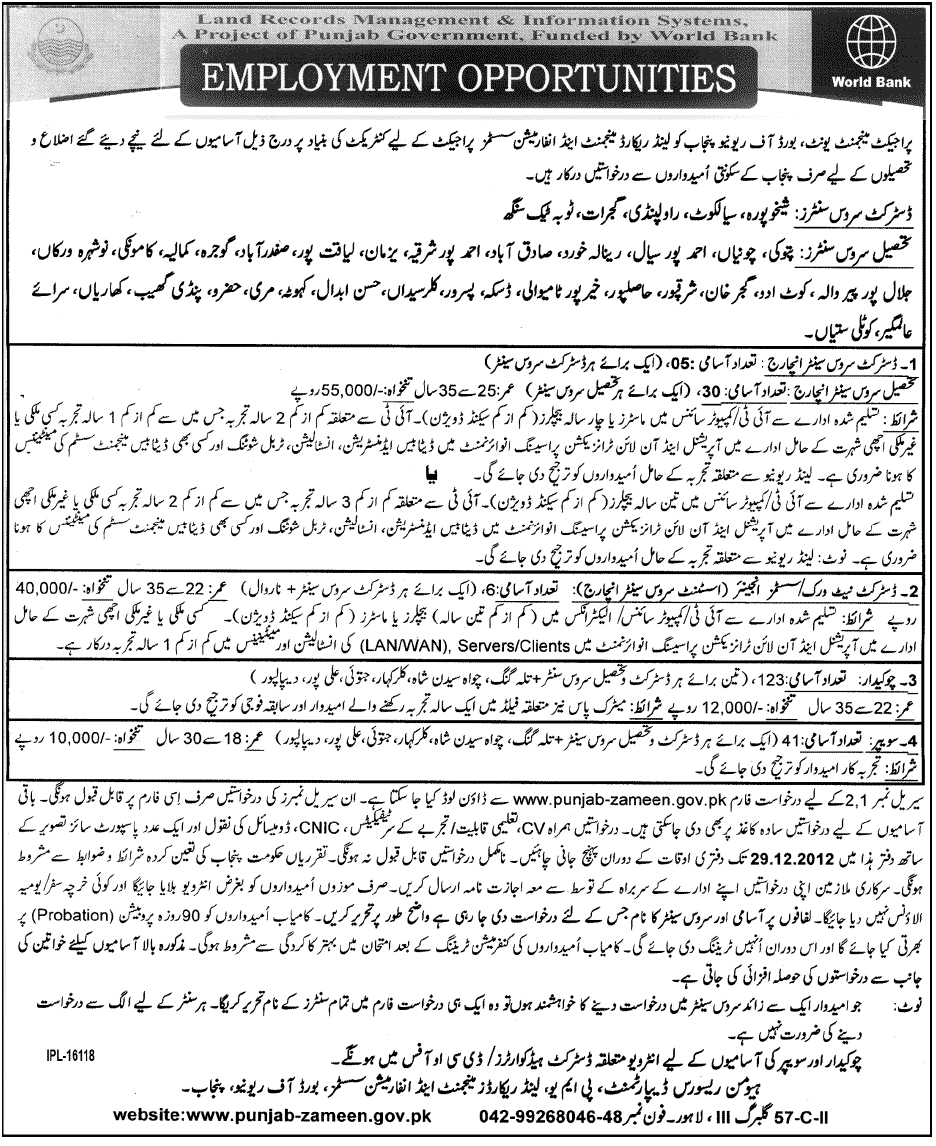 Land Records Management & Information Systems,
A Project of Punjab Government, Funded by World Bank
EMPLOYMENT OPPORTUNITIES
World Bank
پراجیکٹ مینجمنٹ یونٹ، بورڈ آف ریونیو پنجاب کو لینڈ ریکارڈ مینجمنٹ اینڈ انفارمیشن سسٹمز پراجیکٹ کے لیے کنٹریکٹ کی بنیاد پر درج ذیل آسامیوں کے لئے نیچے دیئے گئے اضلاع و
تحصیلوں کے لیے صرف پنجاب کے سکونتی اُمیدواروں سے درخواستیں درکار ہیں۔
ڈسٹرکٹ سروس سنٹرز: شیخوپورہ، سیالکوٹ، راولپنڈی، گجرات، ٹوبہ ٹیک سنگھ
تحصیل سروس سنٹرز: پتوکی، چونیاں، احمد پور سیال، رینالہ خورد، صادق آباد، احمد پور شرقیہ، یزمان، لیاقت پور، صفدرآباد، گوجرہ، کمالیہ، کامونکی، نوشہرہ ورکاں،
جلال پور پیر والہ، کوٹ ادو، گجر خان، شرقپور، حاصلپور، خیر پور ٹامیوالی، ڈسکہ، پسرور، کلرسیداں، حسن ابدال، کہوٹہ، مری، حضرو، پنڈی گھیب، کھاریاں، سرائے
عالمگیر، کوٹلی ستیاں۔
1۔ ڈسٹرکٹ سروس سینٹر انچارج: تعداد آسامی: 05، (ایک برائے ہر ڈسٹرکٹ سروس سینٹر)
تحصیل سروس سینٹر انچارج: تعداد آسامی: 30، (ایک برائے ہر تحصیل سروس سینٹر) عمر: 25 سے 35 سال تنخواہ: -/55,000 روپے
شرائط: تسلیم شدہ ادارے سے آئی ٹی/کمپیوٹر سائنس میں ماسٹرز یا چار سالہ بیچلرز (کم از کم سیکنڈ ڈویژن)۔ آئی ٹی سے متعلقہ کم از کم 2 سالہ تجربہ جس میں سے کم از کم 1 سالہ تجربہ کسی ملکی یا
غیر ملکی اچھی شہرت کے حامل ادارے میں آپریشنل اینڈ آن لائن ٹرانزیکشن پراسیسنگ انوائرنمنٹ میں ڈیٹابیس ایڈمنسٹریشن، انسٹالیشن، ٹربل شوٹنگ اور کسی بھی ڈیٹا بیس مینجمنٹ سسٹم کی مینٹیننس
کا ہونا ضروری ہے۔ لینڈ ریونیو سے متعلقہ تجربہ کے حامل اُمیدواروں کو ترجیح دی جائے گی۔ یا
تسلیم شدہ ادارے سے آئی ٹی/کمپیوٹر سائنس میں تین سالہ بیچلرز (کم از کم سیکنڈ ڈویژن)۔ آئی ٹی سے متعلقہ کم از کم 3 سالہ تجربہ جس میں سے کم از کم 2 سالہ تجربہ کسی ملکی یا غیر ملکی اچھی
شہرت کے حامل ادارے میں آپریشنل اینڈ آن لائن ٹرانزیکشن پراسیسنگ انوائرنمنٹ میں ڈیٹابیس ایڈمنسٹریشن، انسٹالیشن، ٹربل شوٹنگ اور کسی بھی ڈیٹابیس مینجمنٹ سسٹم کی مینٹیننس کا ہونا
ضروری ہے۔ نوٹ: لینڈ ریونیو سے متعلقہ تجربہ کے حامل اُمیدواروں کو ترجیح دی جائے گی۔
2۔ ڈسٹرکٹ نیٹ ورک/سسٹمز انجینئر (اسسٹنٹ سروس سینٹر انچارج): تعداد آسامی: 6، (ایک برائے ہر ڈسٹرکٹ سروس سینٹر + نارووال) عمر: 22 سے 35 سال تنخواہ: -/40,000
روپے شرائط: تسلیم شدہ ادارے سے آئی ٹی/کمپیوٹر سائنس/الیکٹرانکس میں (کم از کم تین سالہ) بیچلرز یا ماسٹرز (کم از کم سیکنڈ ڈویژن)۔ کسی ملکی یا غیر ملکی اچھی شہرت کے حامل
ادارے میں آپریشنل اینڈ آن لائن ٹرانزیکشن پراسیسنگ انوائرنمنٹ میں LAN/WAN), Servers/Clients) کی انسٹالیشن اور مینٹیننس میں کم از کم 1 سالہ تجربہ درکار ہے۔
3۔ چوکیدار: تعداد آسامی: 123، (تین برائے ہر ڈسٹرکٹ و تحصیل سروس سنٹر + تلہ گنگ، چواہ سیدن شاہ، کلرکہار، جتوئی، علی پور، دیپالپور)
عمر: 22 سے 35 سال تنخواہ: -/12,000 روپے شرائط: میٹرک پاس نیز متعلقہ فیلڈ میں ایک سالہ تجربہ رکھنے والے امیدوار اور سابقہ فوجی کو ترجیح دی جائے گی۔
4۔ سویپر: تعداد آسامی: 41 (ایک برائے ہر ڈسٹرکٹ و تحصیل سروس سینٹر + تلہ گنگ، چواہ سیدن شاہ، کلرکہار، جتوئی، علی پور، دیپالپور) عمر: 18 سے 30 سال تنخواہ: -/10,000 روپے
شرائط: تجربہ کار امیدوار کو ترجیح دی جائے گی۔
سیریل نمبر 2,1 کے لیے درخواست فارم www.punjab-zameen.gov.pk سے ڈاؤن لوڈ کیا جا سکتا ہے۔ ان سیریل نمبرز کی درخواستیں صرف اِسی فارم پر قابل قبول ہونگی۔ باقی
آسامیوں کے لیے درخواستیں سادہ کاغذ پر بھی دی جا سکتی ہیں۔ درخواستیں ہمراہ CV، تعلیمی قابلیت/تجربے کے سرٹیفکیٹس، CNIC، ڈومیسائل کی نقول اور ایک عدد پاسپورٹ سائز تصویر کے
ساتھ دفتر ہذا میں 29.12.2012 تک دفتری اوقات کے دوران پہنچ جانی چاہئیں۔ نامکمل درخواستیں قابل قبول نہ ہونگی۔ تقرریاں حکومت پنجاب کی تعین کردہ شرائط و ضوابط سے مشروط
ہونگی۔ سرکاری ملازمین اپنی درخواستیں اپنے ادارے کے سربراہ کے توسط سے معہ اجازت نامہ ارسال کریں۔ صرف موزوں اُمیدواروں کو بغرض انٹرویو بلایا جائیگا اور کوئی خرچہ سفر/یومیہ
الاؤنس نہیں دیا جائیگا۔ لفافوں پر آسامی اور سروس سینٹر کا نام جس کے لئے درخواست دی جا رہی ہے واضح طور پر تحریر کریں۔ کامیاب اُمیدواروں کو 90 روزہ پروبیشن (Probation) پر
بھرتی کیا جائے گا اور اس دوران اُنہیں ٹریننگ دی جائے گی۔ کامیاب اُمیدواروں کی کنفرمیشن ٹریننگ کے بعد امتحان میں بہتر کارکردگی سے مشروط ہوگی۔ مذکورہ بالا آسامیوں کیلئے خواتین کی
جانب سے درخواستوں کی حوصلہ افزائی کی جاتی ہے۔
نوٹ: جو امیدوار ایک سے زائد سروس سینٹر میں درخواست دینے کا خواہشمند ہوں تو وہ ایک ہی درخواست فارم میں تمام سنٹرز کے نام تحریر کریگا۔ ہر سنٹر کے لیے الگ سے درخواست
دینے کی ضرورت نہیں ہے۔
چوکیدار اور سویپر کی آسامیوں کے لیے انٹرویو متعلقہ ڈسٹرکٹ ہیڈکوارٹرز/ڈی سی او آفس میں ہونگے۔
IPL-16118
ہیومن ریسورس ڈیپارٹمنٹ، پی ایم یو، لینڈ ریکارڈز مینجمنٹ اینڈ انفارمیشن سسٹمز، بورڈ آف ریونیو، پنجاب۔
57-C-II گلبرگ III، لاہور۔ فون نمبر 042-99268046-48 website:www.punjab-zameen.gov.pk